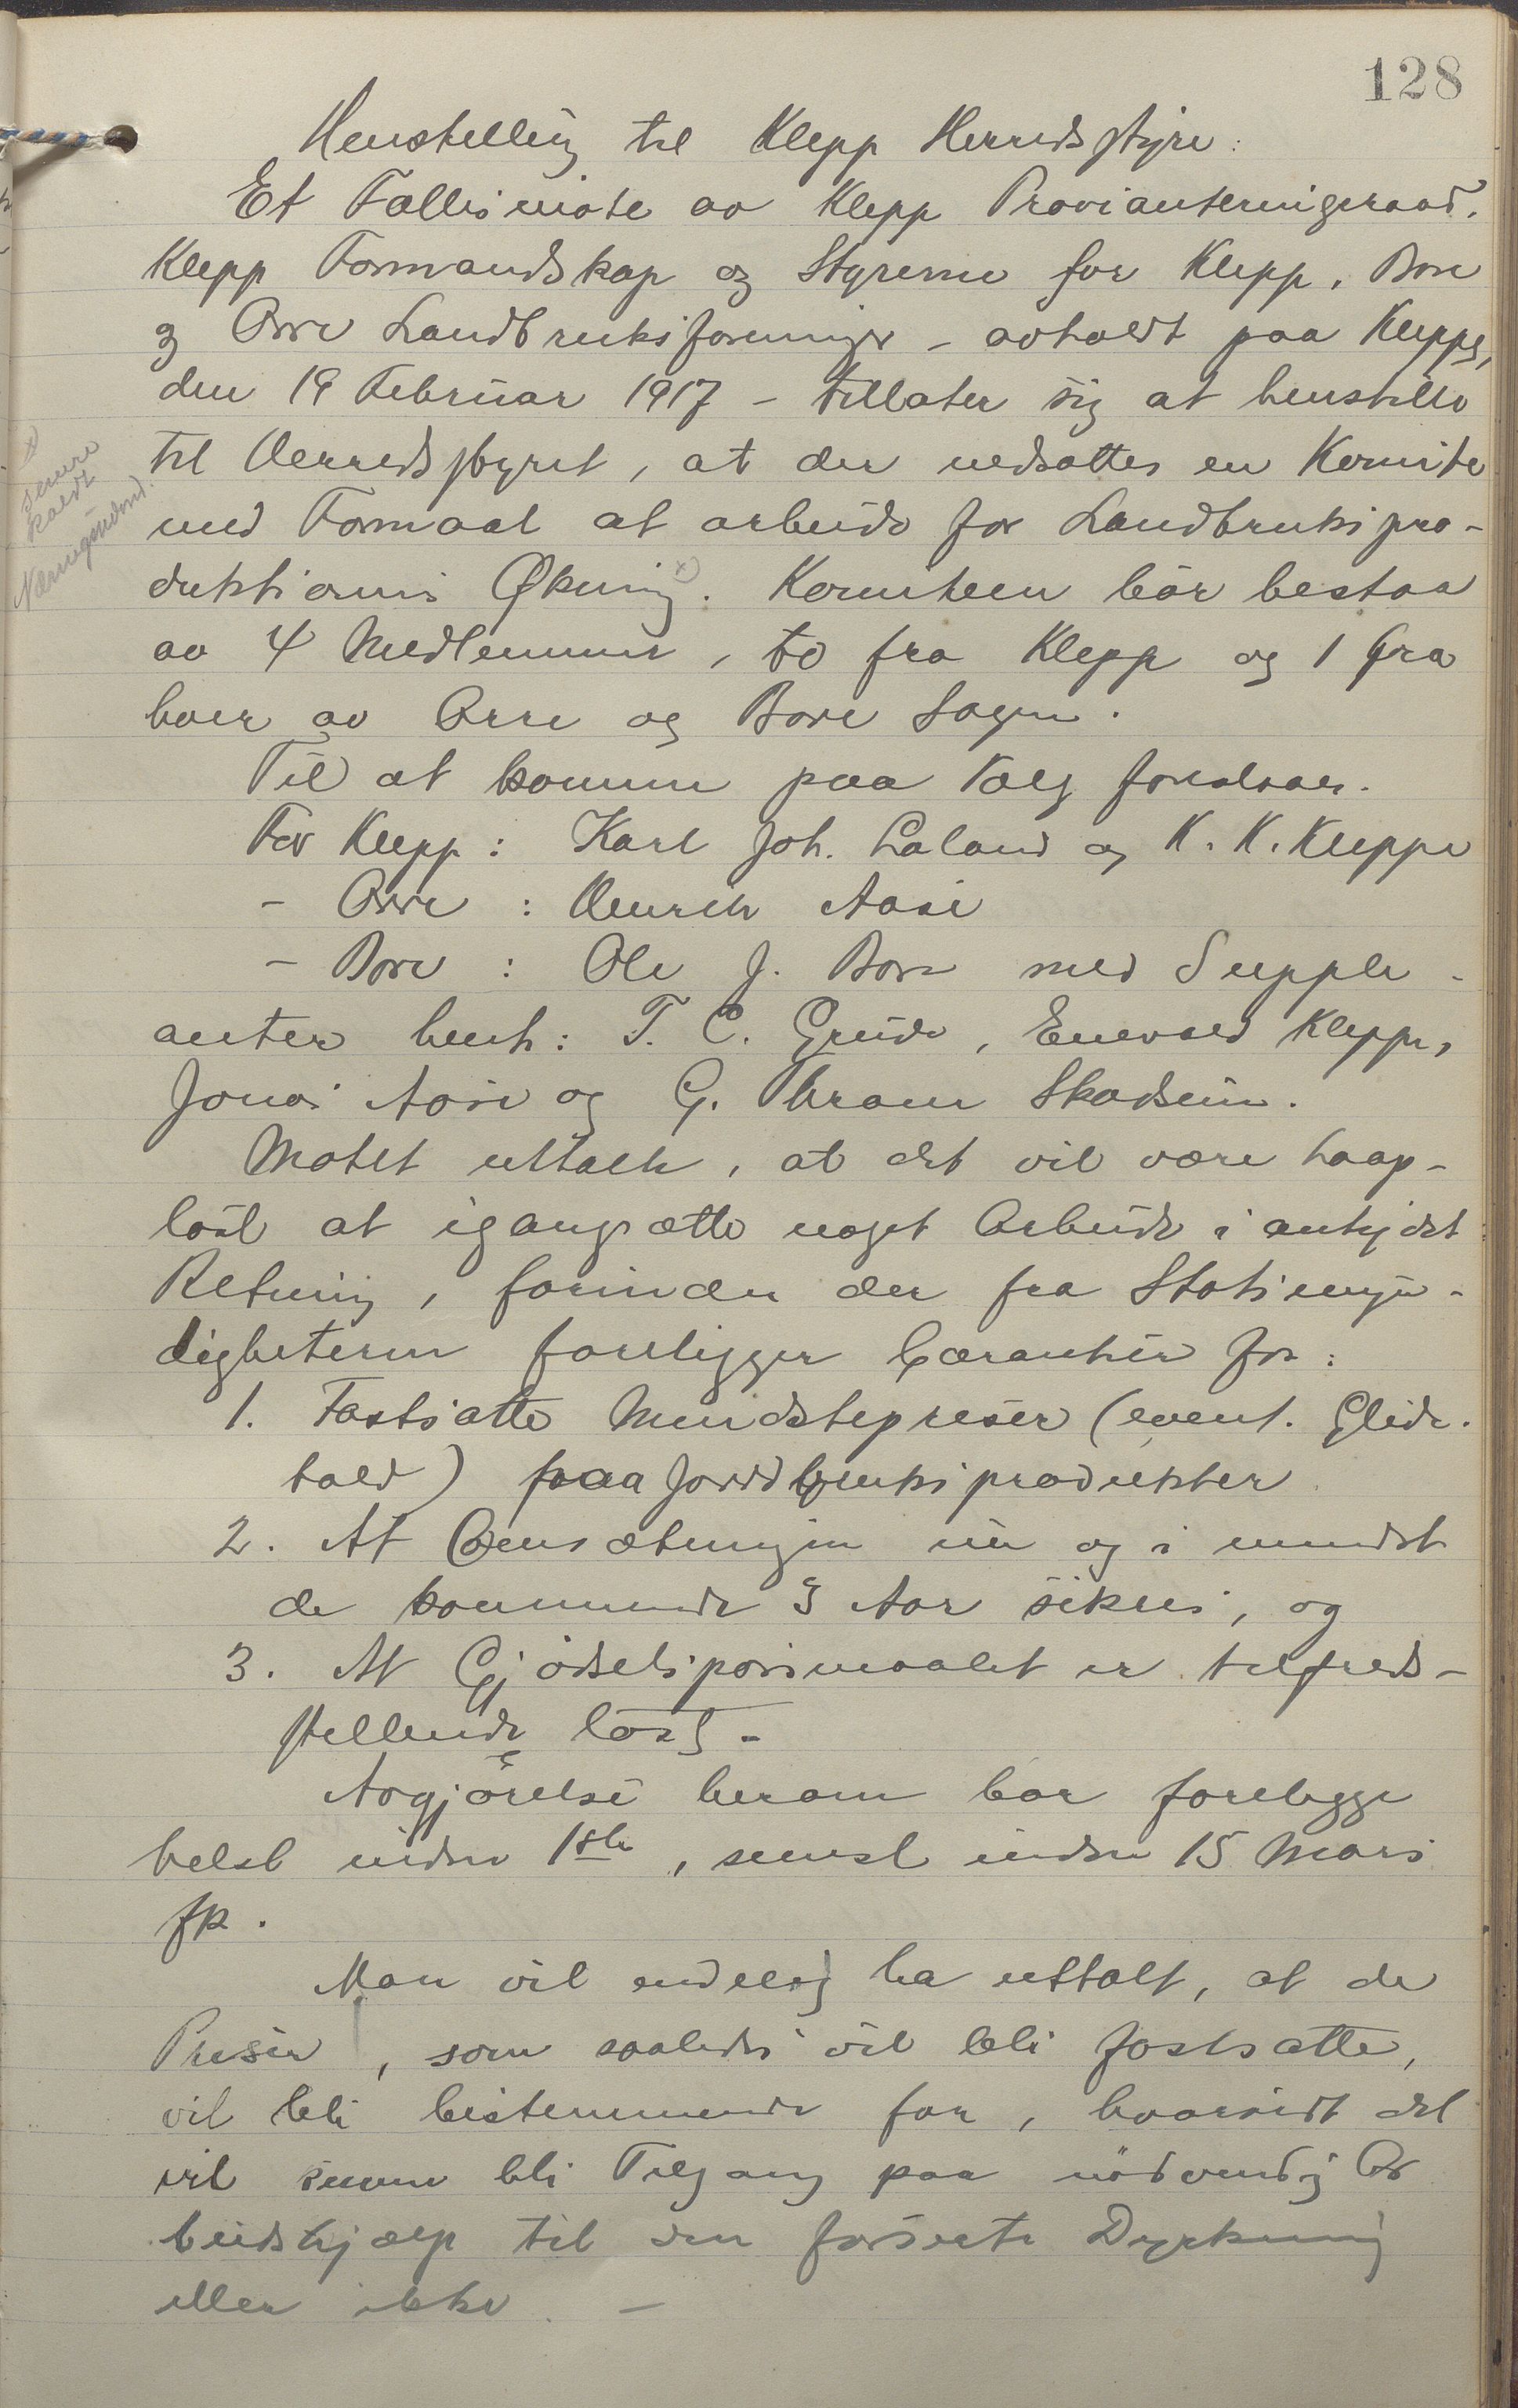 128
Henstilling til Klepp Herredsstyre:
Et Fællesmøte av Klepp Provianteringsraad,
Klepp Formandskap og Styrerne for Klepp, Bore
og Orre Landbruksforeninger – avholdt paa Kleppe,
den 19 Februar 1917 – tillater sig at henstille
til Herredsstyret, at der nedsættes en Komite
med Formaal at arbeide for Landbrukspro-
duktionens Økning x). Komiteen bör bestaa
av 4 Medlemmer, to fra Klepp og 1 fra
hver av Orre og Bore Sogn.
x)
senere
kaldt
Til at komme paa Valg foreslaaes.
For Klepp: Karl Joh. Laland og K. K. Kleppe
– Orre : Henrik Aase
– Bore : Ole J. Bore med Supple-
anter henh: T. C. Grude, Enevald Kleppe,
Jonas Aase og G. Braum Skadsem.
Møtet uttalte, at det vil være haap-
löst at igangsætte noget Arbeide i antydet
Retning, forinden der fra Statsmyn-
digheterne foreligger Garantier for:
1. Fastsatte Mindstepriser (event. Glide-
told) paa Jordbruksprodukter
2. At Omsætningen nu og i mindst
de kommende 3 Aar sikres, og
3. At Gjödselspörsmaalet er tilfreds-
stillende löst. –
Avgjörelse herom bör foreligge
helst inden 1ste, senest inden 15 Mars
fk.
Man vil endelig ha uttalt, at de
Priser, som saaledes vil bli fastsatte,
vil bli bestemmende for, hvorvidt det
vil kunne bli Tilgang paa nödvendig Ar
beidshjælp til den forserte Dyrkning
eller ikke. –